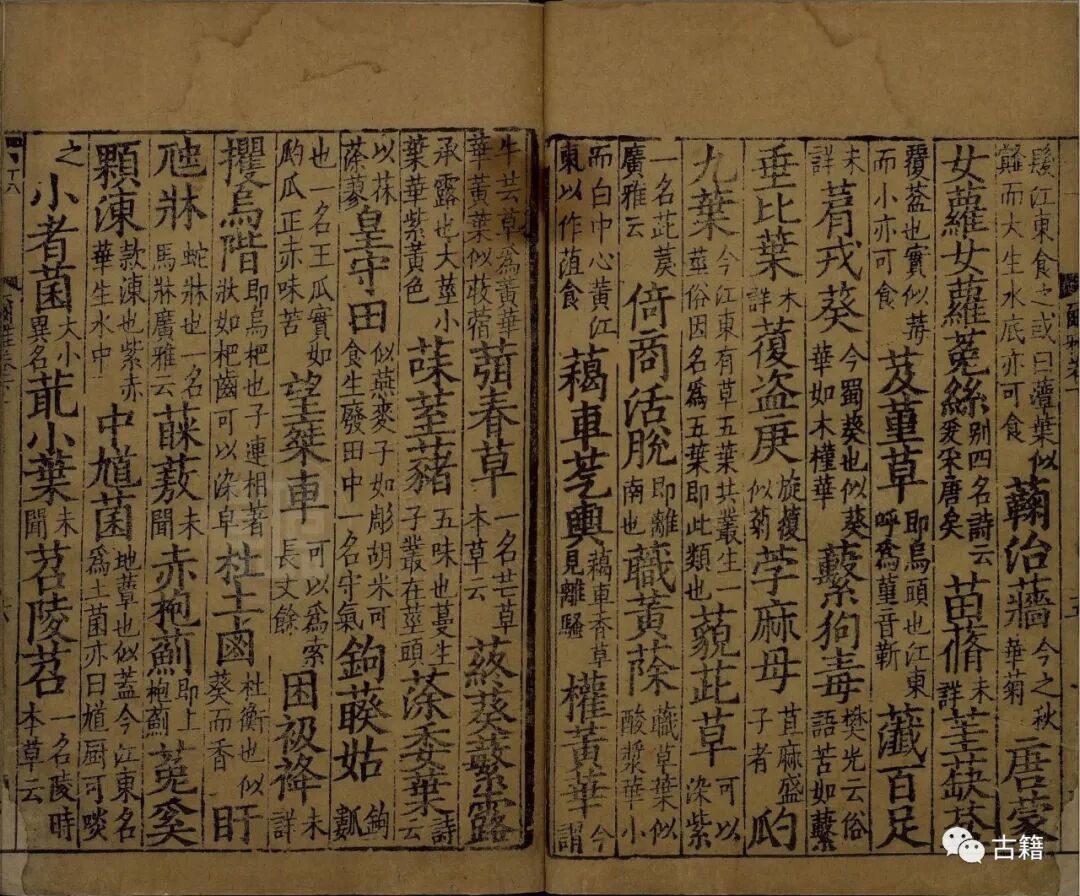 江東食之或曰藫葉似䪥而大生水底亦可食蘜治蘠今之秋華菊唐蒙
女蘿女蘿菟絲別四名詩云爰采唐矣苗蓨未詳茥蒛葐
覆葐也實似莓而小亦可食芨菫草即烏頭也江東呼爲菫音靳虃百足
未詳菺戎葵今蜀葵也似葵華如木槿華蘻狗毒樊光云俗語苦如蘻
垂比葉未詳蕧盜庚旋蕧似菊荸麻母苴麻盛子者瓝
九葉今江東有草五葉共叢生一莖俗因名爲五葉即此類也藐茈草可以染紫
一名茈䓞廣雅云倚商活脫即離南也蘵黃蒢蘵草葉似酸漿華小
而白中心黃江東以作葅食藒車芞輿藒車香草見離騷權黃華今謂
牛芸草爲黃華華黃葉似䓴蓿葞春草一名芒草本草云蔠葵蘩露
承露也大莖小葉華紫黃色菋荎藸五味也蔓生子叢在莖頭蒤委葉詩云
以茠蒤蓼皇守田似燕麥子如彫胡米可食生廢田中一名守氣鉤藈姑鉤瓤
也一名王瓜實如瓝瓜正赤味苦望椉車可以爲索長丈餘困衱袶未詳
攫烏階即烏杷也子連相著狀如杷齒可以染皁杜土鹵杜衡也似葵而香盱
虺牀蛇牀也一名馬牀廣雅云蔝蔜未聞赤枹薊即上枹薊菟奚
顆涷款涷也紫赤華生水中中馗菌地蕈也似蓋今江東名爲土菌亦曰馗厨可啖
之小者菌大小異名菆小葉未聞苕陵苕一名陵時本草云
古籍